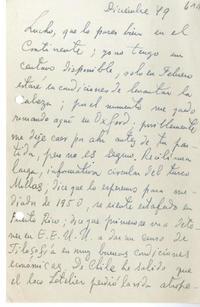 Diciembre 49
Lucho, que lo pases bien en el
Continente; yo no tengo un
centavo disponible, solo en Febrero
estaré en condiciones de levantar la
cabeza; por el momento me quedo
aquí en Oxford; posiblemente
me deje caer por ahí antes de tu par-
tida, pero no es seguro. Recibí una
larga, informativa circular del turco
Millas; dice que lo esperemos para me-
diados de 1950, se siente estafado en
Puerto Rico; dice que primero se va a dete-
ner en E.E.U.U. a dar un curso de
Filosofía en muy buenas condiciones
económicas. De Chile he sabido que
el loco Letelier perdió la vida